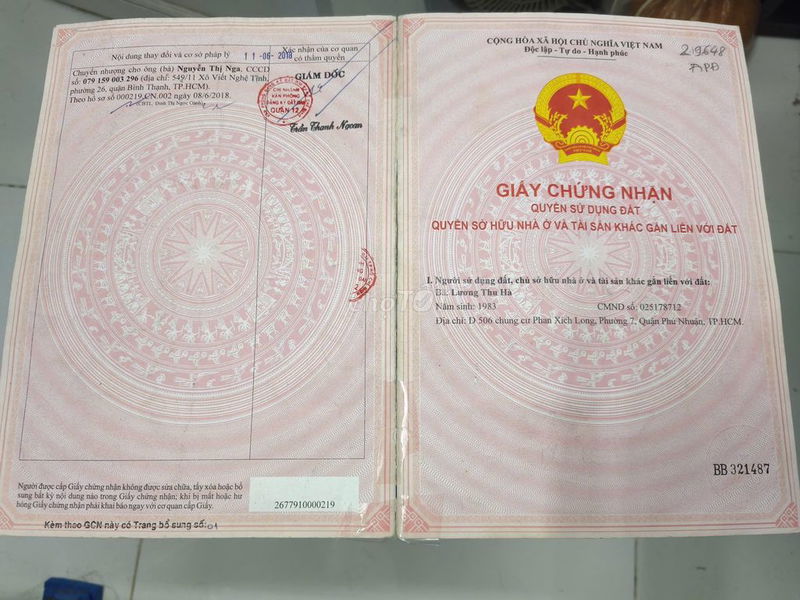 Nội dung thay đổi và cơ sở pháp lý
11-06-2018
Xác nhận của cơ quan
có thẩm quyền
Chuyển nhượng cho ông (bà) Nguyễn Thị Nga, CCCD
số 079 159 003 296 (địa chỉ: 549/11 Xô Viết Nghệ Tĩnh,
phường 26, quận Bình Thạnh, TP.HCM).
Theo hồ sơ số 000219.CN.002 ngày 08/6/2018.
GIÁM ĐỐC
CHI NHÁNH
VĂN PHÒNG
ĐĂNG KÝ ĐẤT ĐAI
QUẬN 12
Trần Thanh Ngoan
Người được cấp Giấy chứng nhận không được sửa chữa, tẩy xóa hoặc bổ
sung bất kỳ nội dung nào trong Giấy chứng nhận; khi bị mất hoặc hư
hỏng Giấy chứng nhận phải khai báo ngay với cơ quan cấp Giấy.
2677910000219
Kèm theo GCN này có Trang bổ sung số: 01
CỘNG HÒA XÃ HỘI CHỦ NGHĨA VIỆT NAM
Độc lập - Tự do - Hạnh phúc
219648
GIẤY CHỨNG NHẬN
QUYỀN SỬ DỤNG ĐẤT
QUYỀN SỞ HỮU NHÀ Ở VÀ TÀI SẢN KHÁC GẮN LIỀN VỚI ĐẤT
I. Người sử dụng đất, chủ sở hữu nhà ở và tài sản khác gắn liền với đất:
Bà: Lương Thu Hà
Năm sinh: 1983 CMND số: 025178712
Địa chỉ: D 506 chung cư Phan Xích Long, Phường 7, Quận Phú Nhuận, TP.HCM.
BB 321487